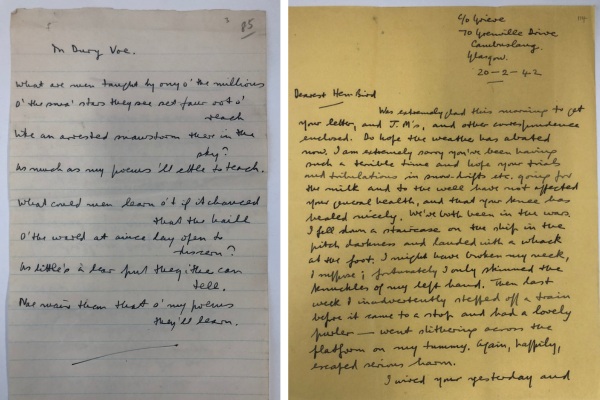 P5
In Dury Voe.
What are men taught by ony o' the millions
O' the sma' stars they see set fair oot o'
reach
Like an arrested snawstorm there in the
sky?
As much as my poems 'll ettle to teach.
What could men learn o't if it chanced
that the haill
O' the warld at aince lay open to
discern?
As little's a lear but they can
tell.
Nae mair than that o' my poems
they'll learn.
c/o Grieve
70 Grenville Drive
Cambuslang.
Glasgow.
20-2-42
Dearest Hen-Bird
Was extremely glad this morning to get
your letter, and J.M's, and other correspondence
enclosed. Do hope the weather has abated
now. I am extremely sorry you've been having
such a terrible time and hope your trials
and tribulations in snow-drifts etc. going for
the milk and to the well have not affected
your general health, and that your knee has
healed nicely. We've both been in the wars.
I fell down a staircase on the ship in the
pitch darkness and landed with a whack
at the foot. I might have broken my neck,
I suppose; fortunately I only skinned the
knuckles of my left hand. Then last
week I inadvertently stepped off a train
before it came to a stop and had a lovely
purler — went slithering across the
platform on my tummy. Again, happily,
escaped serious harm.
I wired you yesterday and